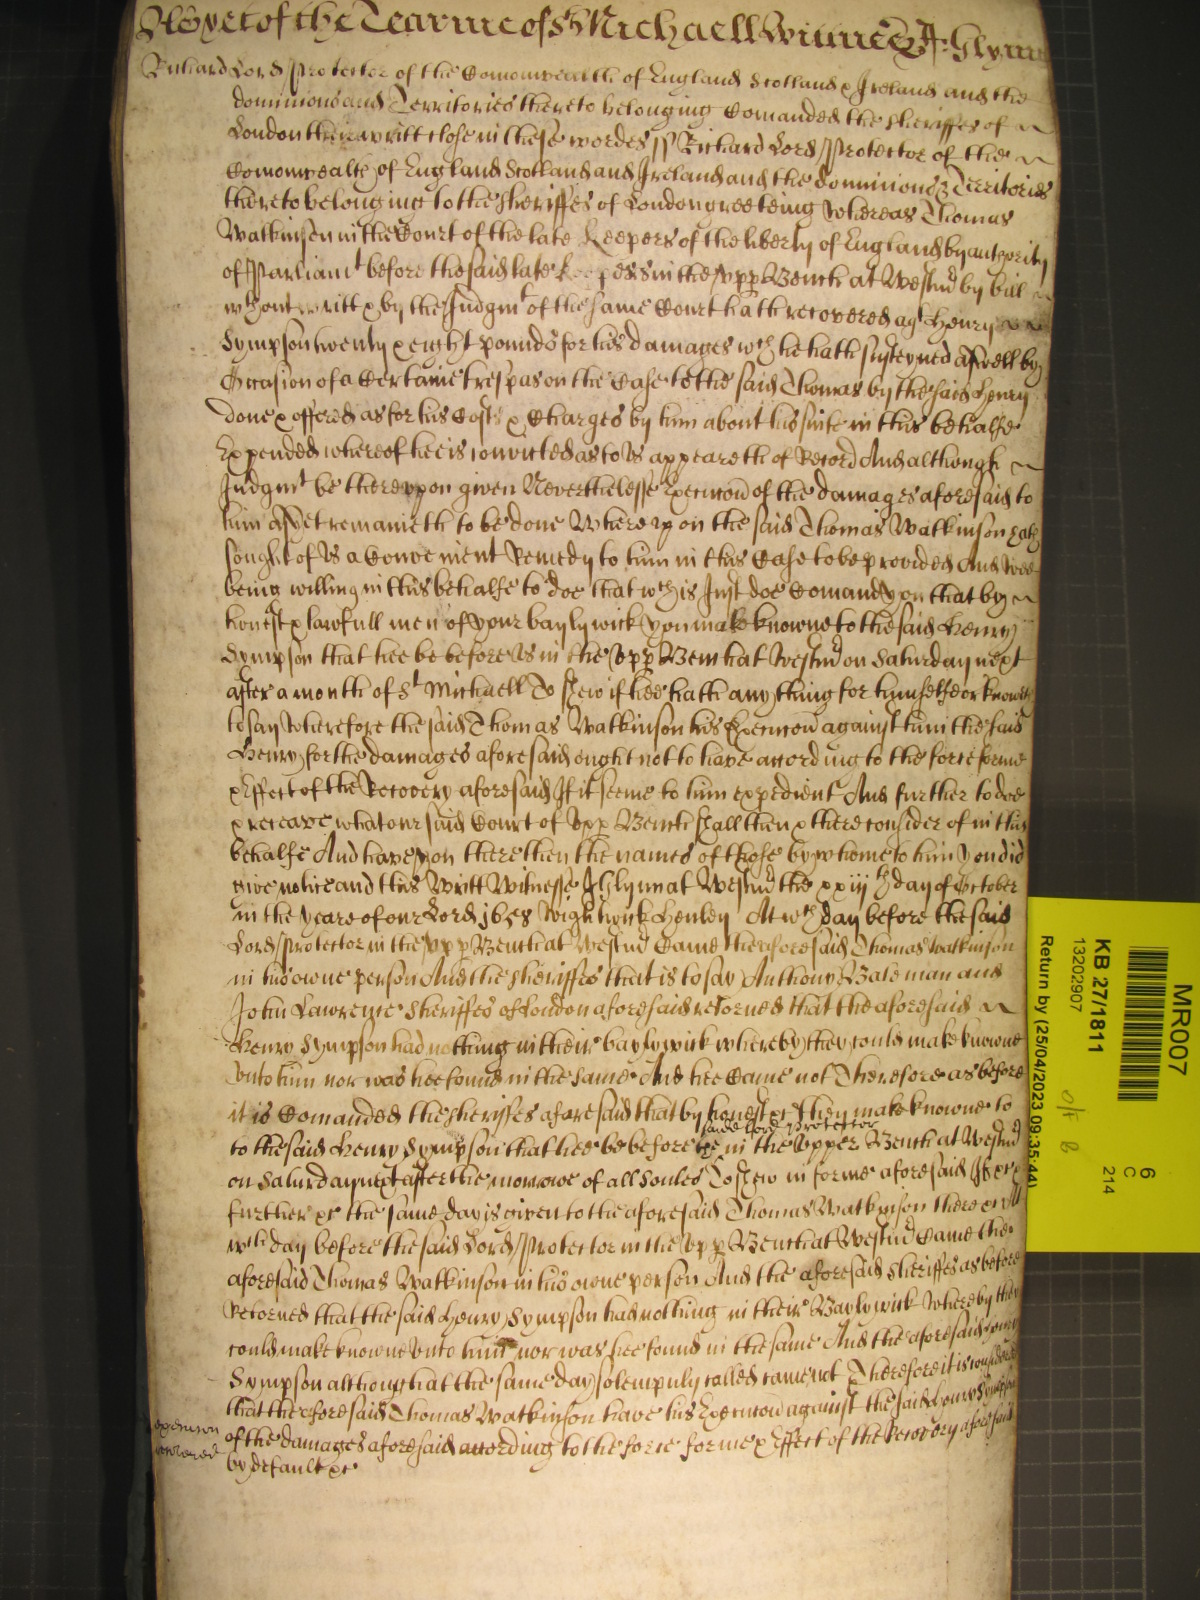 As yet of the Tearme of St Michaell Witnes J: Glynn
Richard Lord Protector of the Comonwealth of England Scotland & Ireland and the
dominions and Territories thereto belonging Comanded the Sheriffes of
London theire writt close in these wordes ss Richard Lord Protector of the
Comonwealth of England Scotland and Ireland and the dominions & Territories
thereto belonging to the Sheriffes of London greeteing Whereas Thomas
Watkinson in the Court of the late Keepers of the liberty of England by authority
of Parliamt before the said late Keepers in the Upp Bench at Westmr by bill
wthout writt & by the Judgmt of the same Court hath recovered agt Henry
Sympson twenty & eight pounds for his damages wch he hath susteyned aswell by
Occasion of a Certaine trespas on the Case to the said Thomas by the said Henry
done & offered as for his Costs & Charges by him about his suite in this behalfe
Expended whereof hee is convicted as to us appeareth of Record And although
Judgmt be thereupon given Neverthelesse Execucon of the damages aforesaid to
him as yet remaineth to be done Whereupon the said Thomas Watkinson hath
sought of Us a Convenient Remedy to him in this Case to be provided And wee
being willing in this behalfe to doe that wch is Just doe Comand you that by
honest & lawfull men of your baylywick you make knowne to the said Henry
Sympson that hee be before Us in the Upp Bench at Westmr on Saturday next
after a month of St Michaell To shew if hee hath any thing for himselfe or knoweth
to say Wherefore the said Thomas Watkinson his Execucon against him the said
Henry for the damages aforesaid ought not to have according to the force forme
& Effect of the Recovery aforesaid If it seeme to him expedient And further to doe
& receave what our said Court of Upp Bench shall then & there consider of in this
behalfe And have you there then the names of those by whome to him you did
give notice and this Writt Witnesse J Glynn at Westmr the xxiijth day of October
in the yeare of our Lord 1658 Wightwick Henley At wch day before the said
Lord Protector in the Upp Bench at Westmr Came the aforesaid Thomas Watkinson
in his owne person And the Sheriffes that is to say Anthony Bateman and
John Lawrence Sheriffes of London aforesaid retorned that the aforesaid
Henry Sympson had nothing in their baylywick whereby they could make knowne
unto him nor was hee found in the same And hee Came not Therefore as before
it is Comanded the Sheriffes aforesaid that by honest &c they make knowne to
said Lord Protector
to the said Henry Sympson that hee be before the in the Upper Bench at Westmr
on Saturday next after the morrowe of all Soules To shew in forme aforesaid If &c
further &c the same day is given to the aforesaid Thomas Watkinson there &c At
wch day before the said Lord Protector in the Upp Bench at Westmr Came the
aforesaid Thomas Watkinson in his owne person And the aforesaid Sheriffes as before
Retorned that the said Henry Sympson had nothing in their Baylywick Whereby they
could make knowne unto him nor was hee found in the same And the aforesaid Henry
Sympson although at the same day solempnly called came not Therefore it is considered
that the aforesaid Thomas Watkinson have his Execucon against the said Henry Sympson
of the damages aforesaid according to the force forme & Effect of the Recovery aforesaid
by default &c
Execucon
MR007
KB 27/1811
13202907
Return by (25/04/2023 09:35:44)
6
C
214